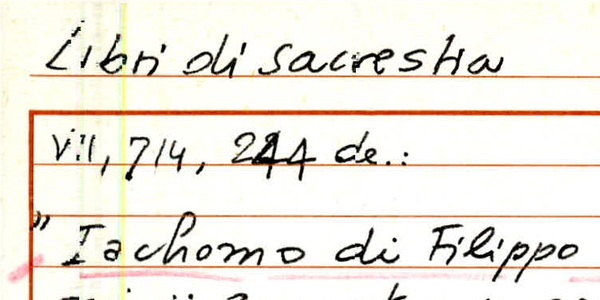 Libri di sacrestia
VII, 714, 244 de.:
" Iachomo di Filippo